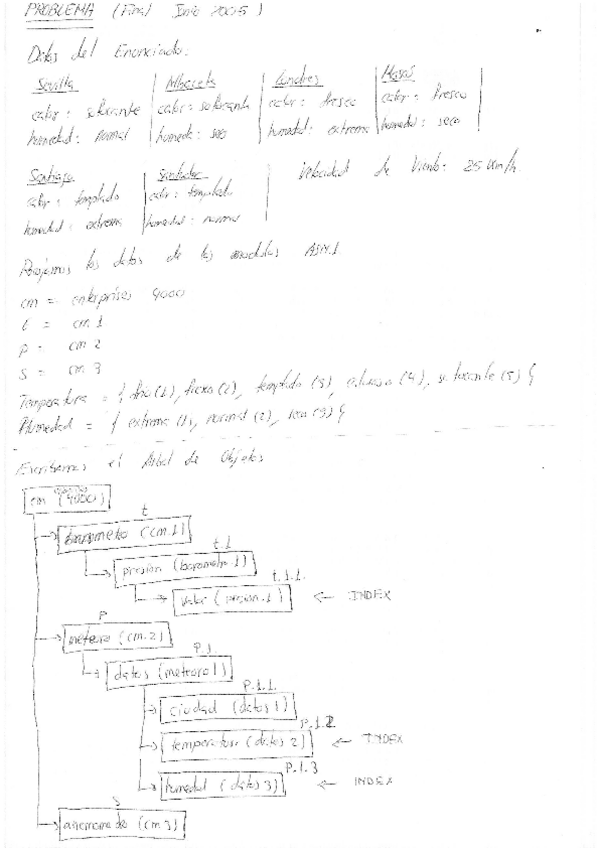 PROBLEMA (Final Junio 2005)
Datos del Enunciado:
Sevilla Albacete Londres
calor: sofocante calor: sofocante calor: fresco calor: fresco
humedad: normal humedad: humedad: extrema humedad: seco
Santiago Santander Velocidad de Viento: 25 km/h
calor: templado calor: templado
humedad: extrema humedad: normal
los datos de los modulos ASN.1
cm = enterprises 4000
t = cm 1
p = cm 2
s = cm 3
Temperatura = { fria (1), fresca (2), templada (3), (4), sofocante (5) }
Humedad = { extrema (1), normal (2), seca (3) }
Escribimos el Arbol de Objetos
cm (4000)
t
barometro (cm.1)
t.1
presion (barometro.1)
t.1.1.
valor (presion.1) ← INDEX
P
meteoro (cm.2)
P.1.
datos (meteoro1)
P.1.1.
ciudad (datos1)
P.1.2
temperatura (datos2) ← INDEX
P.1.3
humedad (datos3) ← INDEX
s
anemometro (cm3)